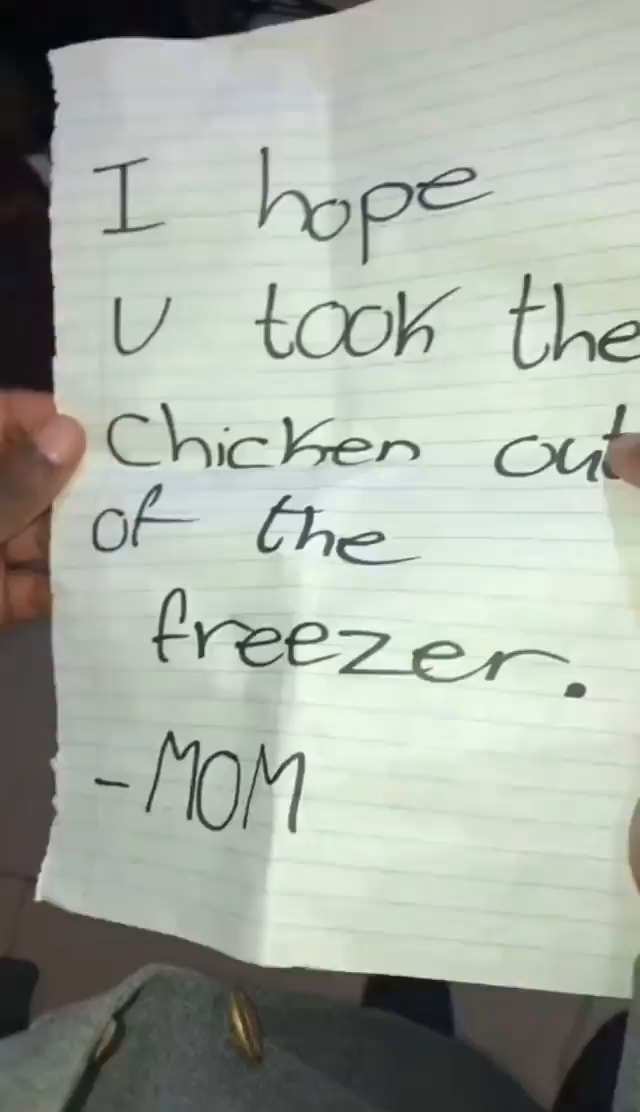 I hope
U took the
Chicken out
of the
freezer.
-MOM